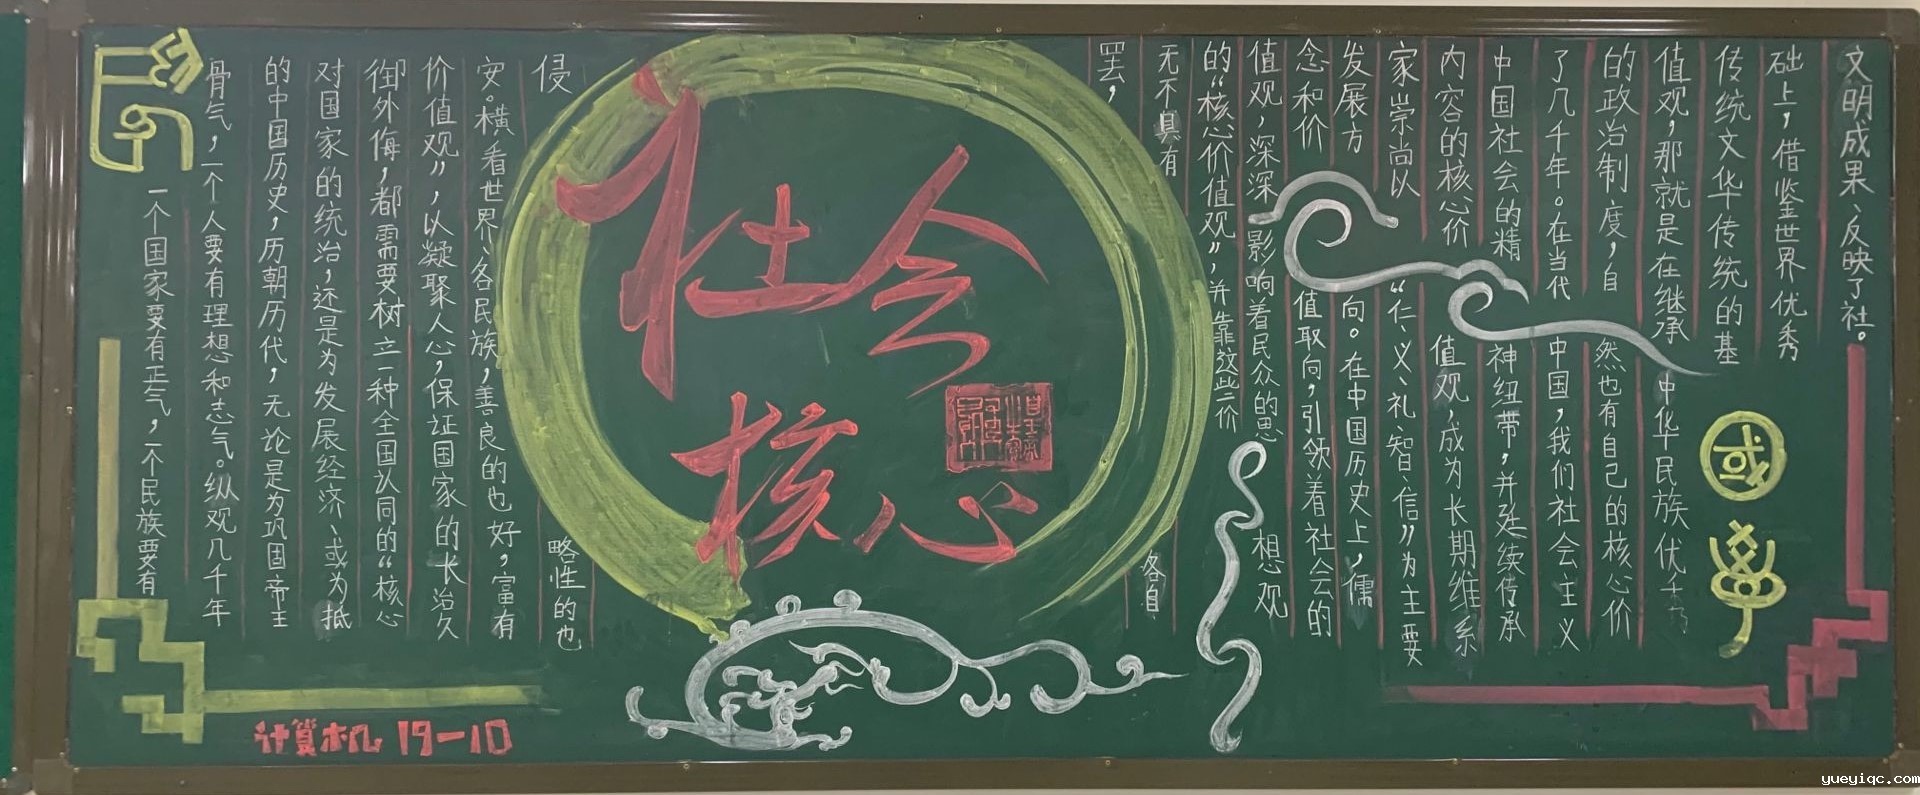 社会
核心
一个国家要有正气，一个民族要有
骨气，一个人要有理想和志气。纵观几千年
的中国历史，历朝历代，无论是为巩固帝王
对国家的统治，还是为发展经济、或为抵
御外侮，都需要树立一种全国认同的“核心
价值观”，以凝聚人心，保证国家的长治久
安。横看世界、各民族，善良的也好，富有
侵略性的也
罢，各自
无不具有
的“核心价值观”，并靠这些价
值观，深深影响着民众的思想观
念和价值取向，引领着社会的
发展方向。在中国历史上，儒
家崇尚以“仁、义、礼、智、信”为主要
内容的核心价值观，成为长期维系
中国社会的精神纽带，并延续传承
了几千年。在当代中国，我们社会主义
的政治制度，自然也有自己的核心价
值观，那就是在继承中华民族优秀
传统文华传统的基
础上，借鉴世界优秀
文明成果、反映了社。
國
计算机19-10
yueyiqc.com